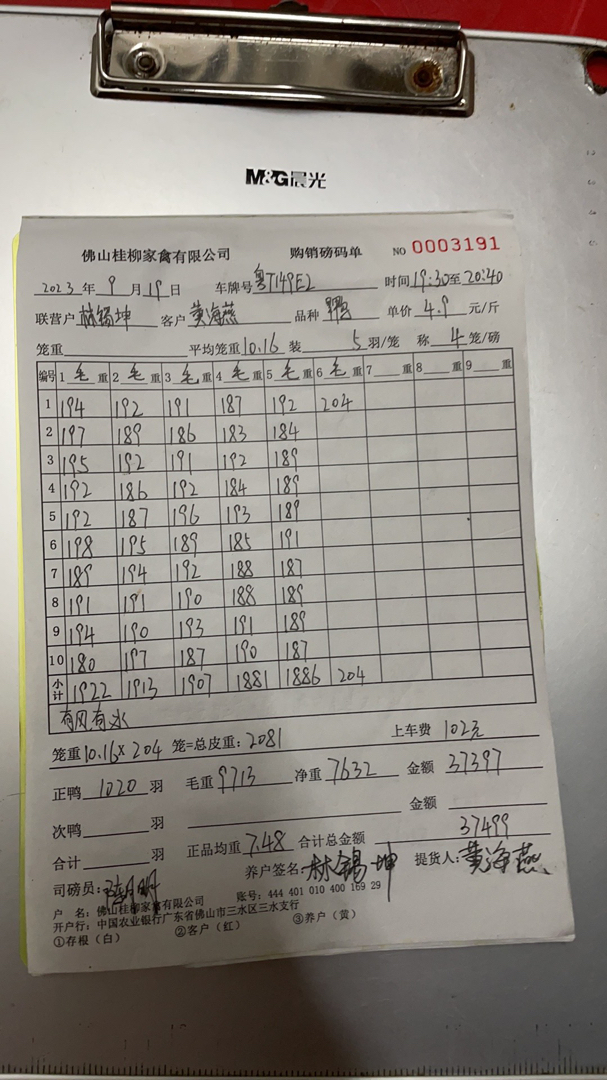 M&G晨光
佛山桂柳家禽有限公司 购销磅码单 NO 0003191
2023年 9月 19日 车牌号 粤T149E2 时间 19:30至20:40
联营户 林锡坤 客户 黄海燕 品种 鸭 单价 4.9 元/斤
笼重 平均笼重 10.16 装 5 羽/笼 称 4 笼/磅
编号 1 毛 重 2 毛 重 3 毛 重 4 毛 重 5 毛 重 6 毛 重 7 重 8 重 9 重
1 194 192 191 187 192 204
2 197 189 186 183 184
3 195 192 191 192 189
4 192 186 192 184 189
5 192 187 196 193 189
6 198 195 189 185 191
7 189 194 192 188 187
8 191 191 190 188 189
9 194 190 193 191 189
10 180 197 187 190 187
小计 1922 1913 1907 1881 1886 204
有风有水
笼重 10.16 x 204 笼=总皮重: 2081 上车费 102元
正鸭 1020 羽 毛重 9713 净重 7632 金额 37397
次鸭 羽 金额
合计 羽 正品均重 7.48 合计总金额 37499
司磅员: 养户签名: 林锡坤 提货人: 黄海燕
户 名: 佛山桂柳家禽有限公司 账号: 444 401 010 400 169 29
开户行: 中国农业银行广东省佛山市三水区三水支行
①存根（白） ②客户（红） ③养户（黄）